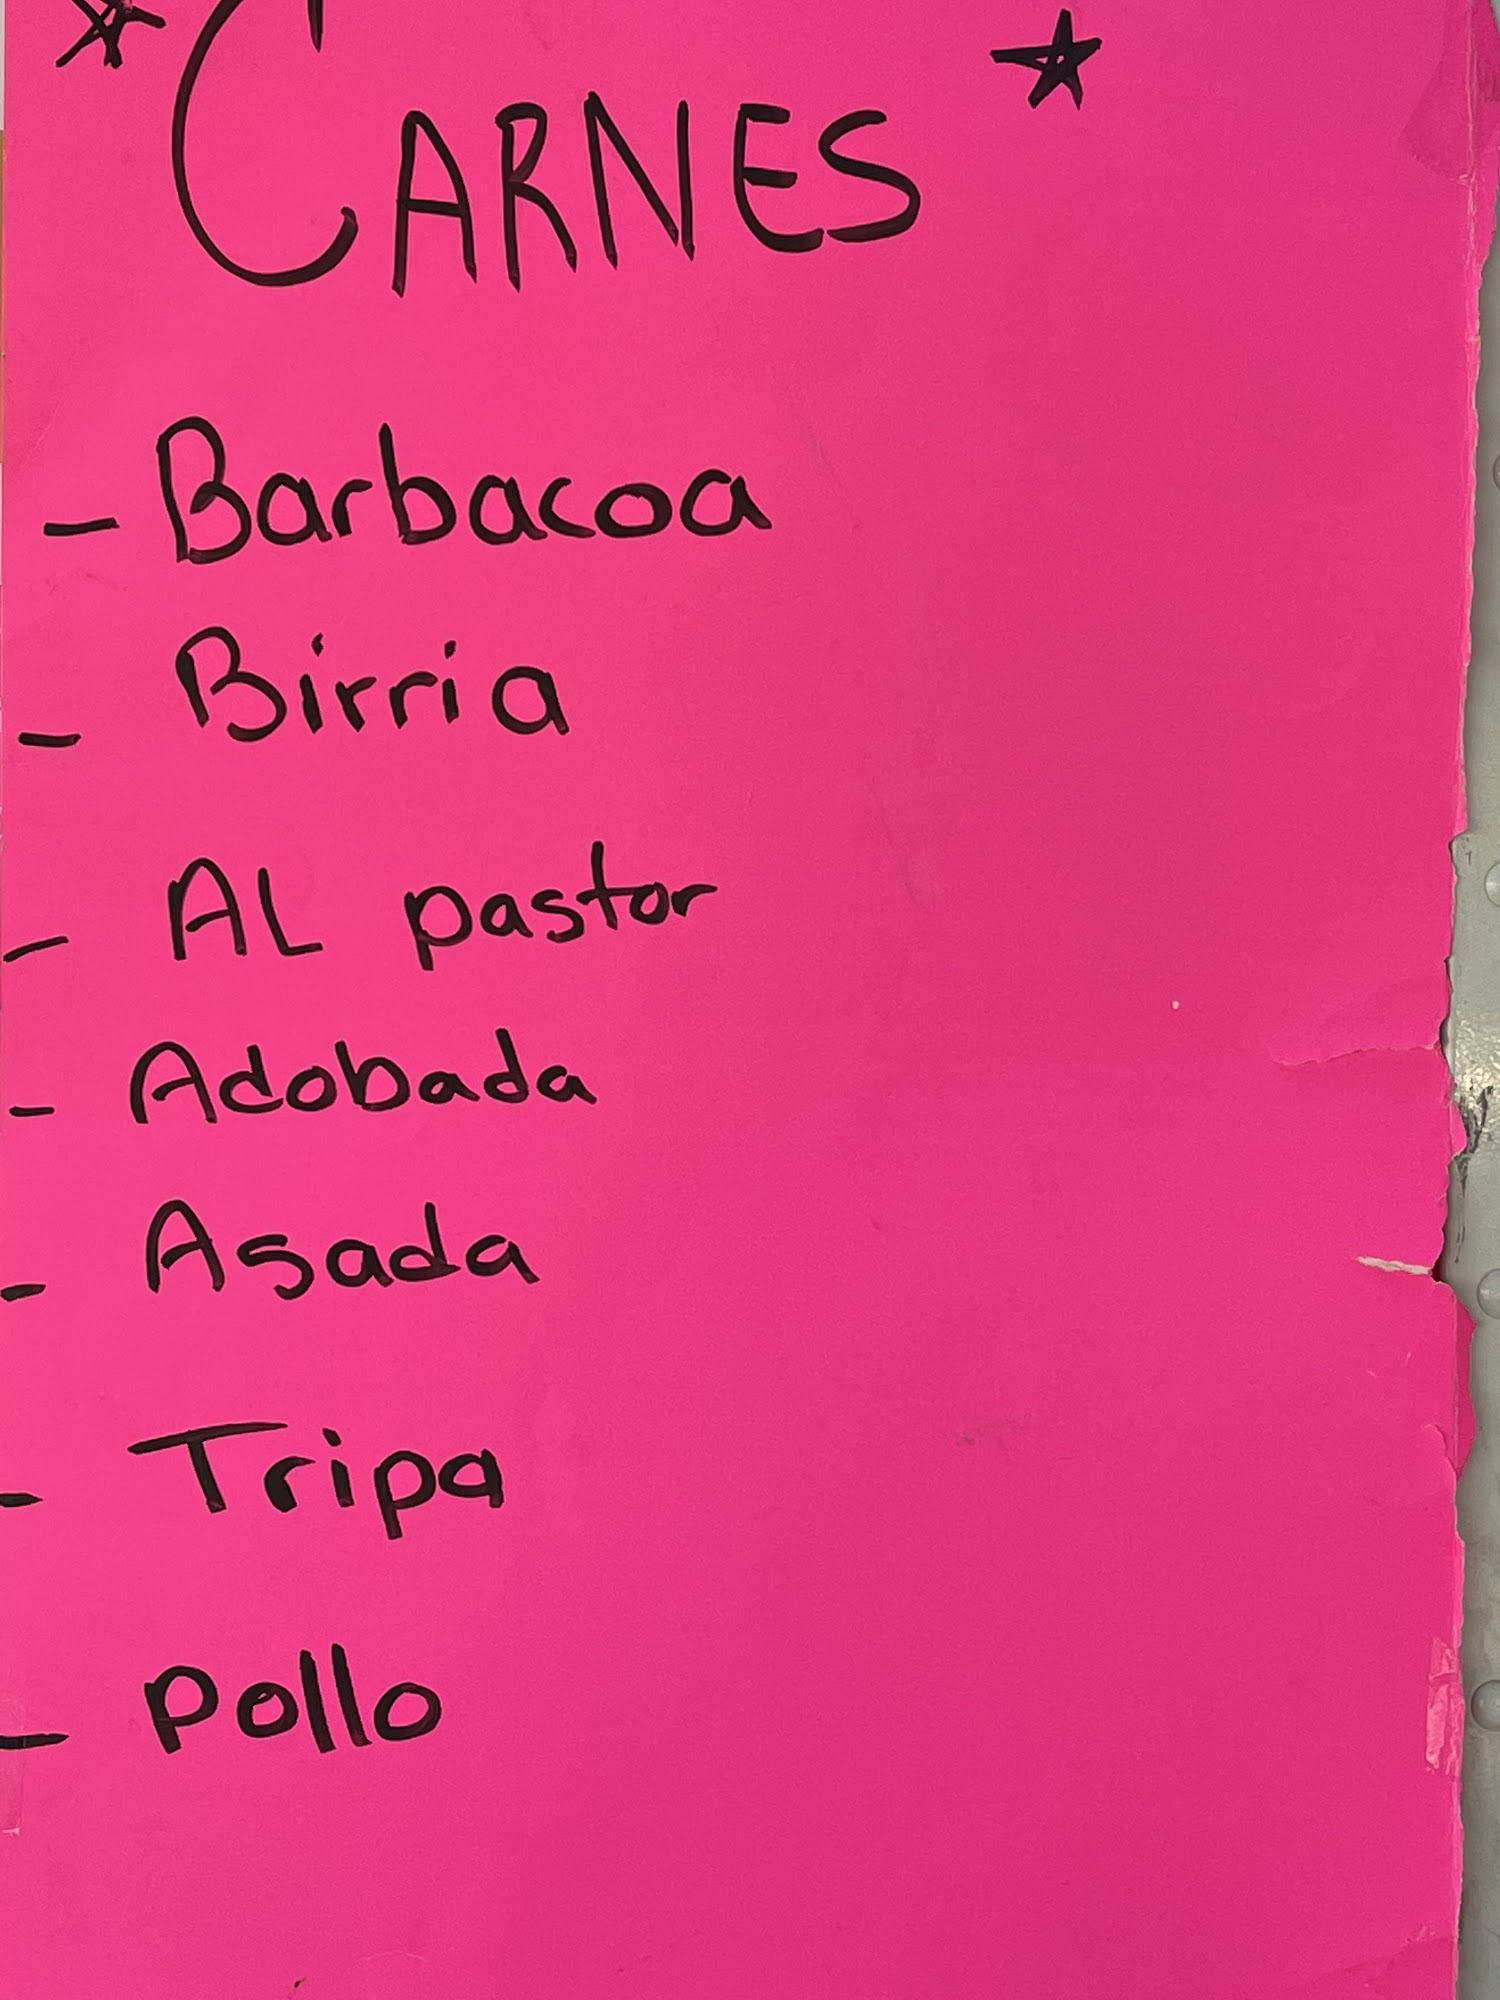 CARNES
- Barbacoa
- Birria
- AL pastor
- Adobada
- Asada
- Tripa
- Pollo